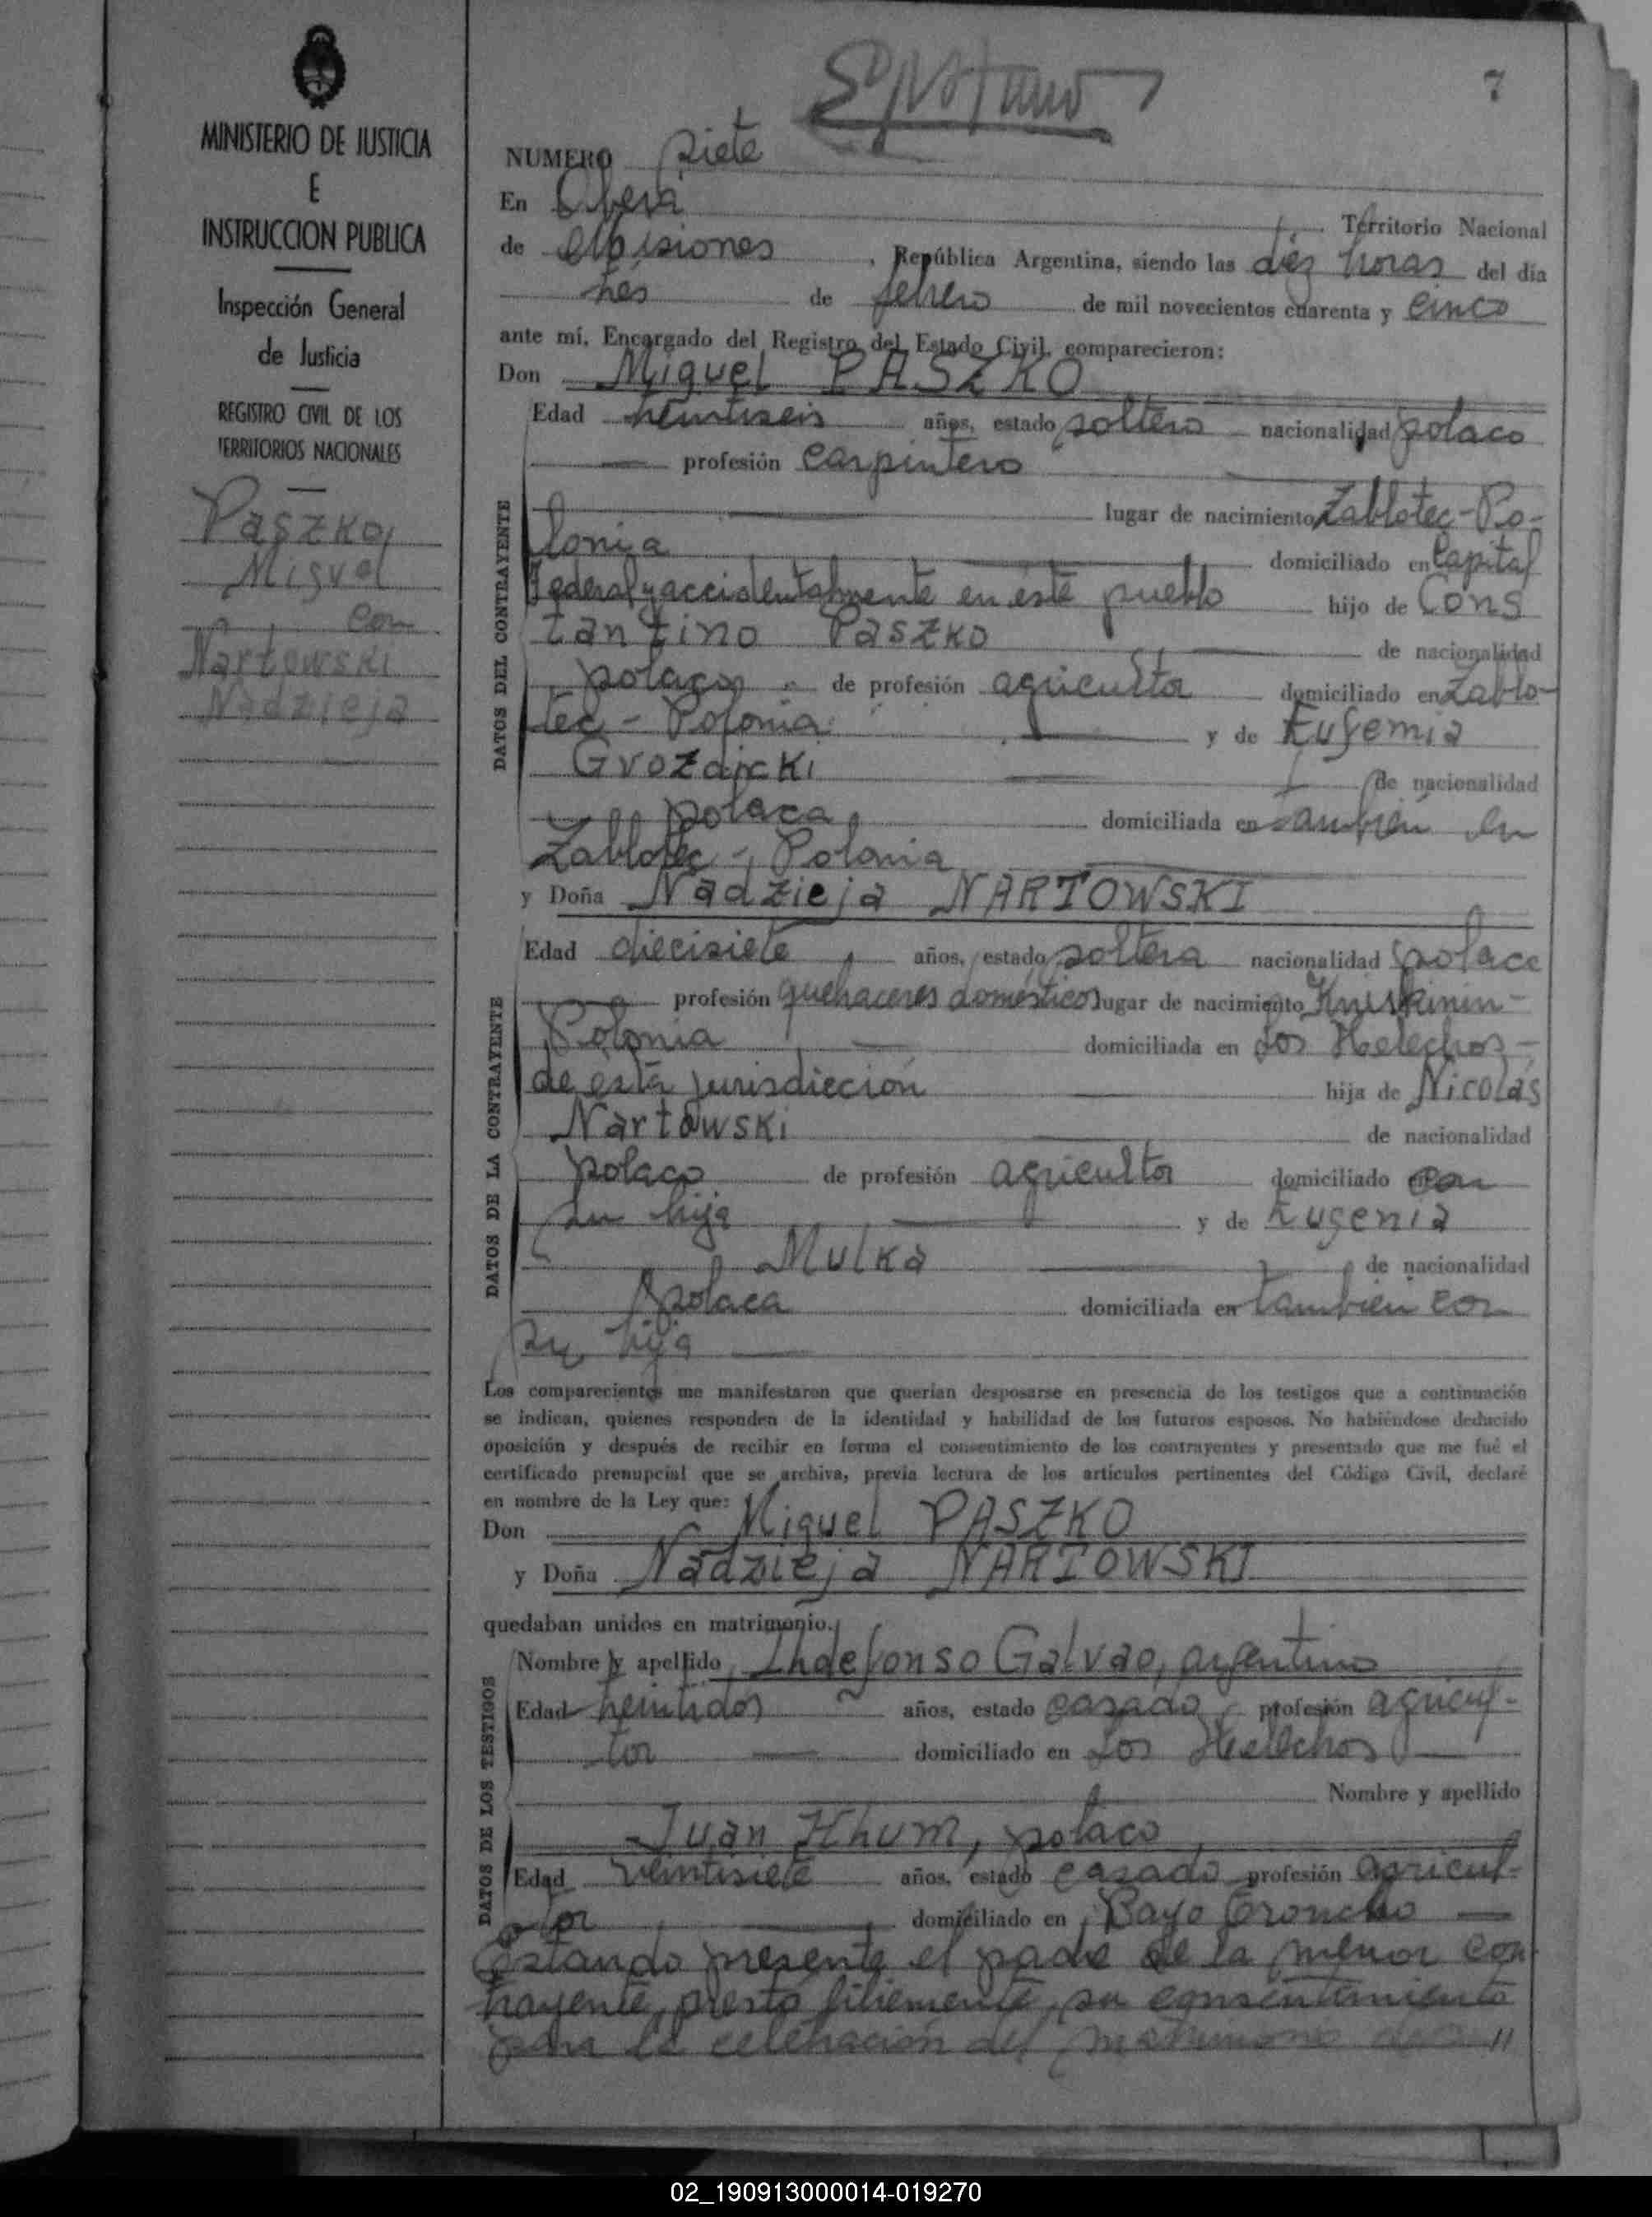 7
MINISTERIO DE JUSTICIA
E
INSTRUCCION PUBLICA
Inspección General
de Justicia
REGISTRO CIVIL DE LOS
TERRITORIOS NACIONALES
Paszko,
Miguel
con
Nartowski
Nadzieja
NUMERO siete
En Oberá Territorio Nacional
de Misiones, República Argentina, siendo las diez horas del día
tres de febrero de mil novecientos cuarenta y cinco
ante mí, Encargado del Registro del Estado Civil, comparecieron:
Don Miguel PASZKO
DATOS DEL CONTRAYENTE
Edad veintiseis años, estado soltero nacionalidad polaco
profesión carpintero
lugar de nacimiento Zablotec-Po-
lonia domiciliado en Capital
Federal y accidentalmente en este pueblo hijo de Cons
tantino Paszko de nacionalidad
polaco de profesión agricultor domiciliado en Zablo-
tec - Polonia y de Eufemia
Gvozdicki de nacionalidad
polaca domiciliada en también en
Zablotec - Polonia
y Doña Nadzieja NARTOWSKI
DATOS DE LA CONTRAYENTE
Edad diecisiete años, estado soltera nacionalidad polaca
profesión quehaceres domésticos lugar de nacimiento
Polonia domiciliada en Los Helechos-
de esta jurisdicción hija de Nicolás
Nartowski de nacionalidad
polaco de profesión agricultor domiciliado con
su hija y de Eugenia
Mulka de nacionalidad
polaca domiciliada en también con
su hija
Los comparecientes me manifestaron que querían desposarse en presencia de los testigos que a continuación
se indican, quienes responden de la identidad y habilidad de los futuros esposos. No habiéndose deducido
oposición y después de recibir en forma el consentimiento de los contrayentes y presentado que me fué el
certificado prenupcial que se archiva, previa lectura de los artículos pertinentes del Código Civil, declaré
en nombre de la Ley que:
Don Miguel PASZKO
y Doña Nadzieja NARTOWSKI
quedaban unidos en matrimonio.
DATOS DE LOS TESTIGOS
Nombre y apellido Ildefonso Galvao, argentino
Edad veintidos años, estado casado profesión agricul-
tor domiciliado en Los Helechos
Nombre y apellido
Juan Khum, polaco
Edad veintisiete años, estado casado profesión agricul-
tor domiciliado en Bayo Troncho
Estando presente el padre de la menor con
trayente, prestó libremente su consentimiento
para la celebración del matrimonio de su //
02_190913000014-019270